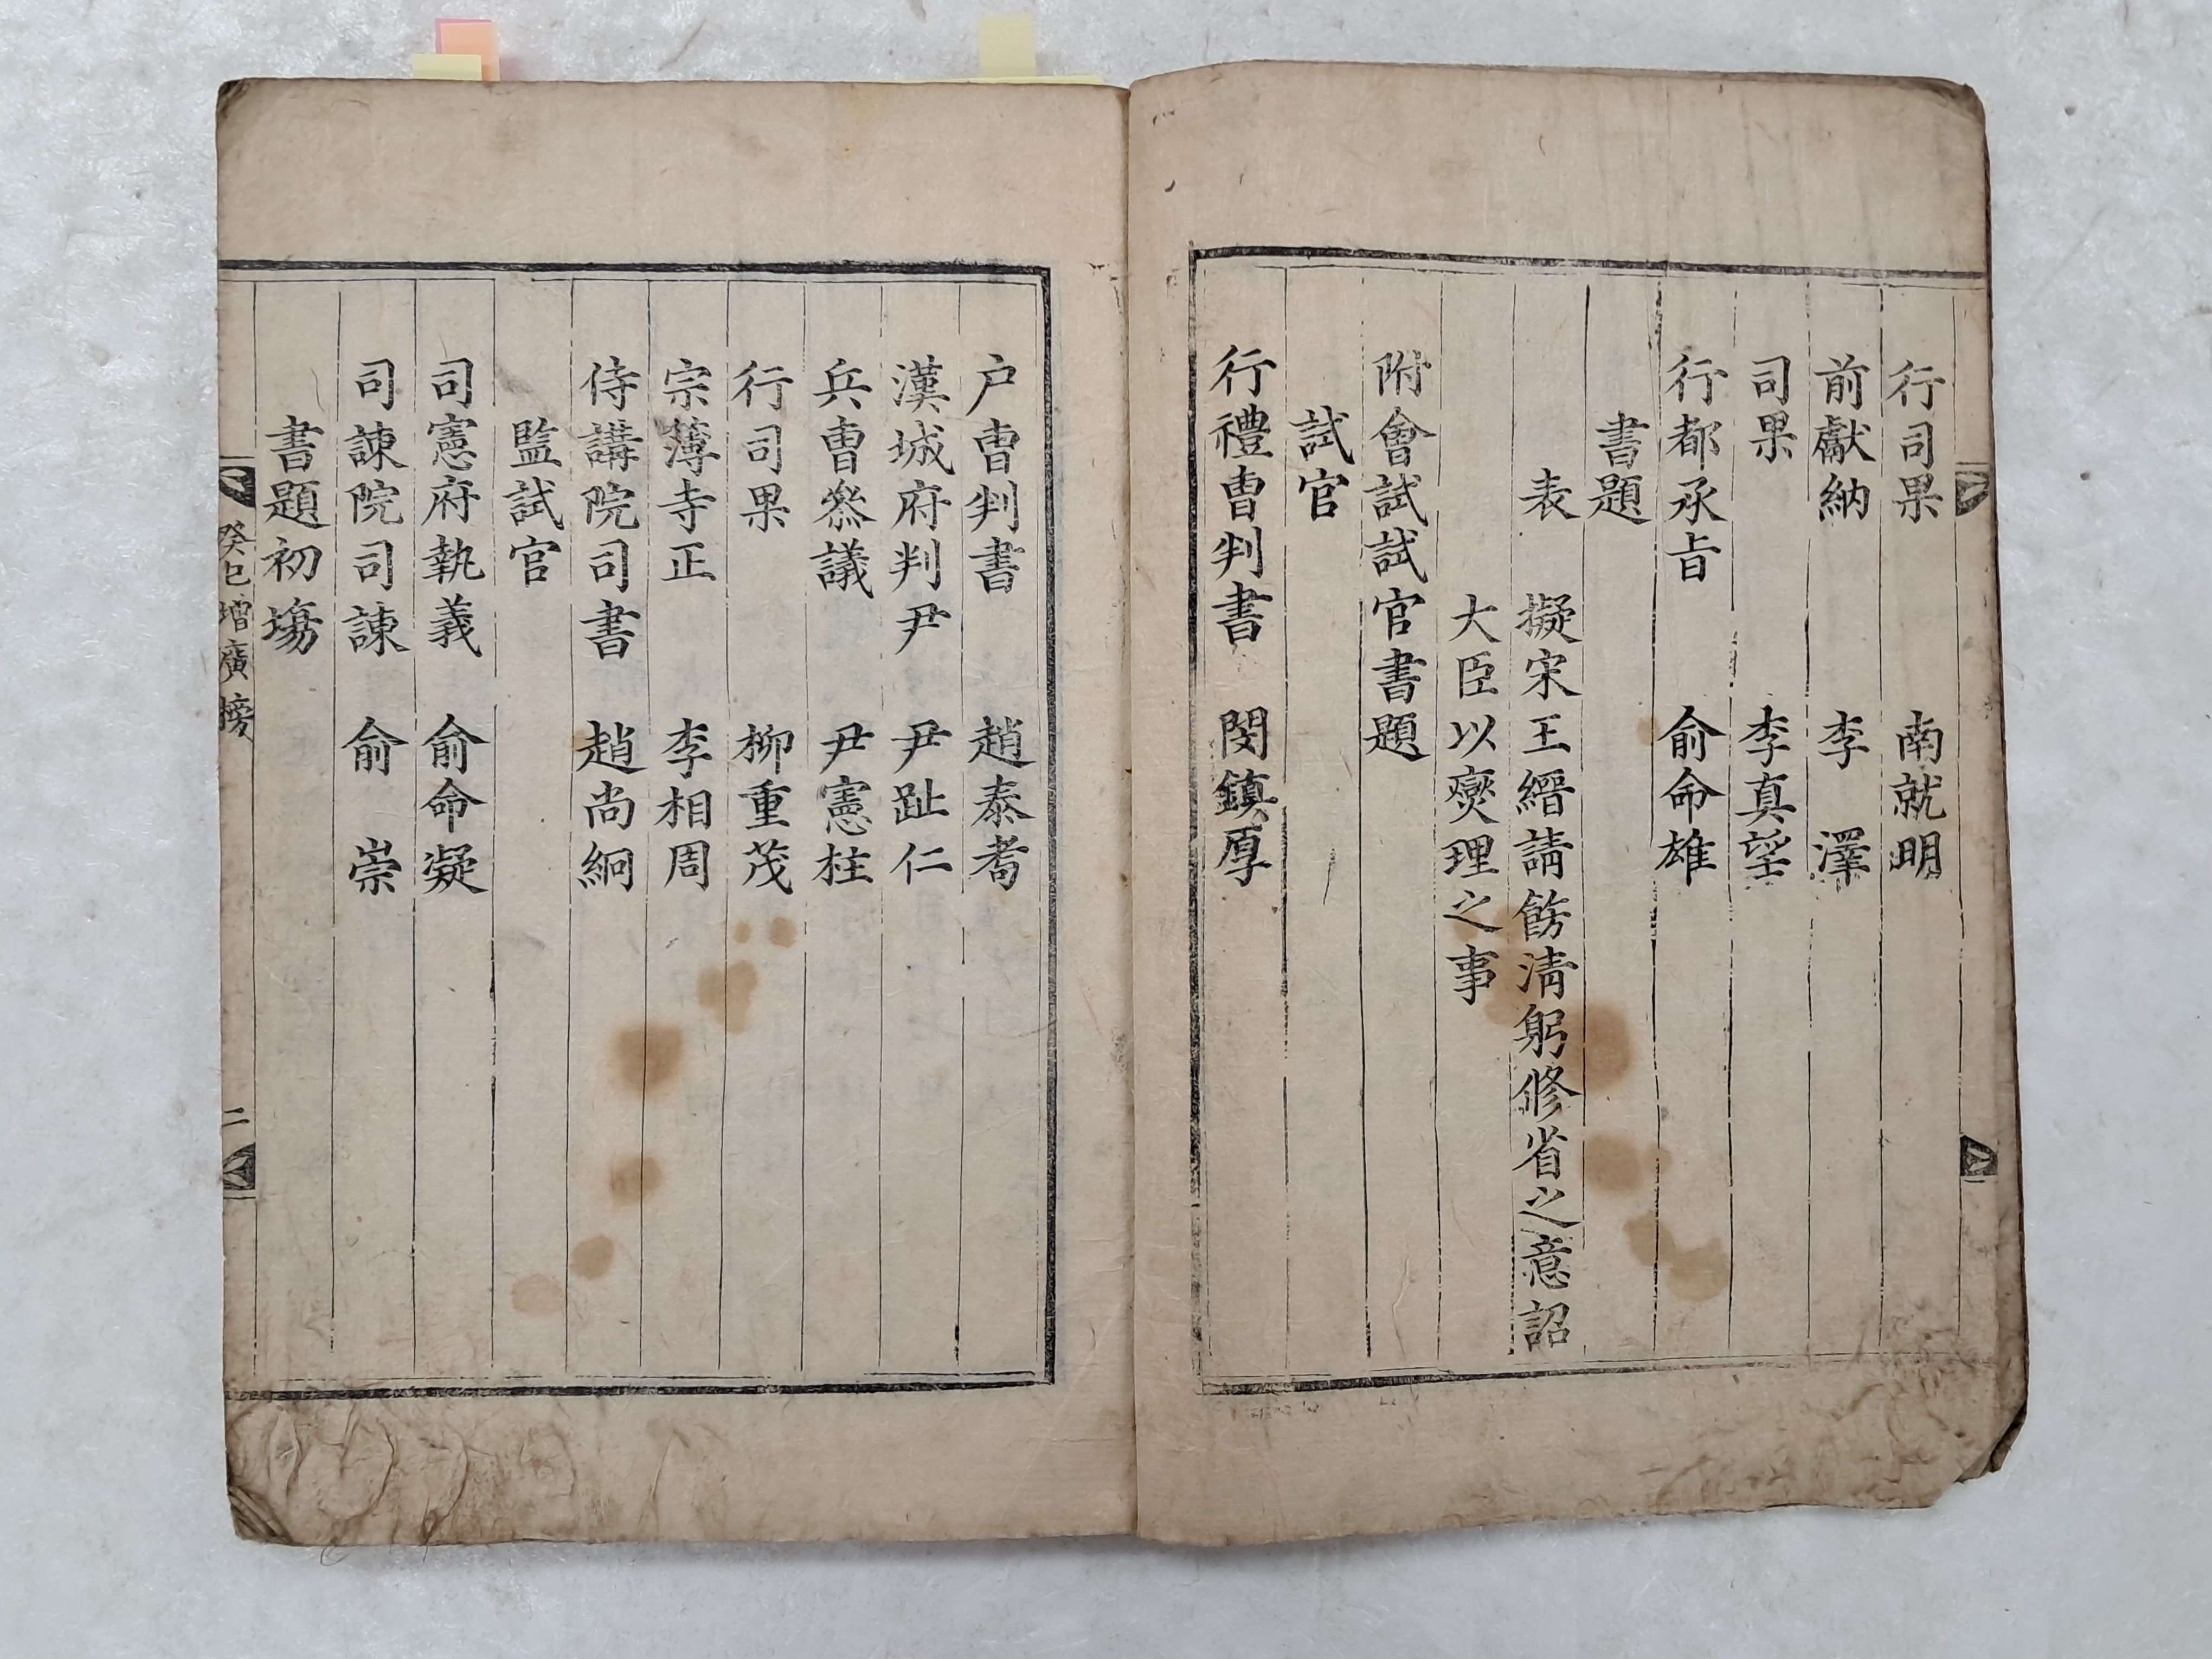 行司果 南就明
前獻納 李 澤
司果 李真望
行都承旨 俞命雄
書題
表 擬宋王縉請飭淸躬修省之意詔
大臣以爕理之事
附會試試官書題
試官
行禮曺判書 閔鎭厚
户曺判書 趙泰耉
漢城府判尹 尹趾仁
兵曺叅議 尹憲柱
行司果 柳重茂
宗簿寺正 李相周
侍講院司書 趙尚絅
監試官
司憲府執義 俞命凝
司諫院司諫 俞 崇
書題初塲
癸巳增廣榜 二